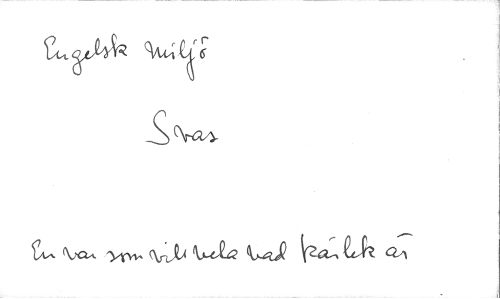 Engelsk miljö
Svas
En var som vill veta vad kärlek är